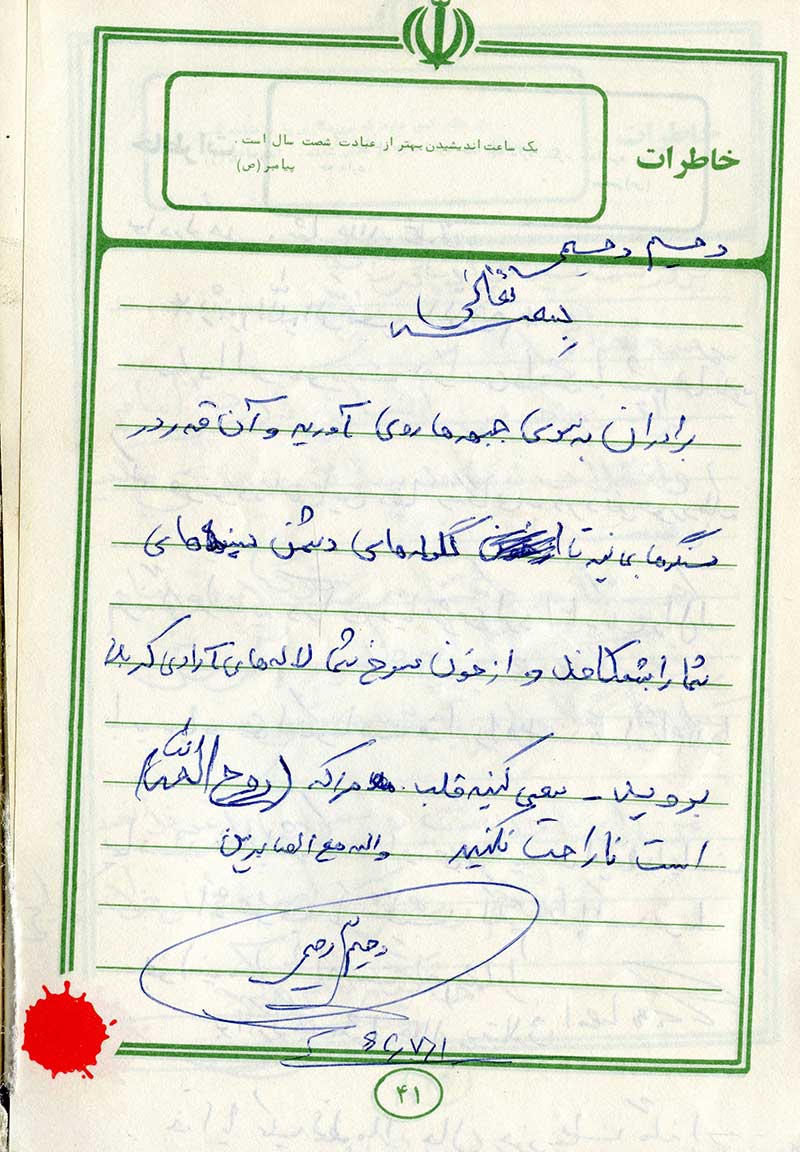 خاطرات
یک ساعت اندیشیدن بهتر از عبادت شصت سال است .
پیامبر (ص)
رحیم رحیمی
بسمه تعالی
برادران به سوی جبهه ها روی آورید و آن قدر در
سنگرها بمانید تا گلوله های دشمن سینه های
شما را بشکافد و از خون سرخ شما لاله های آزادی کربلا
بروید - سعی کنید قلب مرا که (روح الله)
است ناراحت نکنید والله مع الصابرین
رحیم رحیمی
۴۱